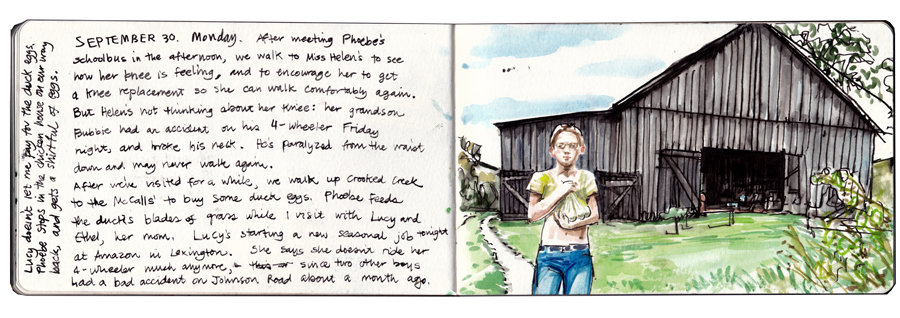 SEPTEMBER 30. Monday. After meeting Phoebe's
schoolbus in the afternoon, we walk to Miss Helen's to see
how her knee is feeling, and to encourage her to get
a knee replacement so she can walk comfortably again.
But Helen's not thinking about her knee: her grandson
Bubbie had an accident on his 4-wheeler Friday
night, and broke his neck. He's paralyzed from the waist
down and may never walk again.
After we've visited for a while, we walk up Crooked Creek
to the McCalls' to buy some duck eggs. Phoebe feeds
the ducks blades of grass while I visit with Lucy and
Ethel, her mom. Lucy's starting a new seasonal job tonight
at Amazon in Lexington. She says she doesn't ride her
4-wheeler much anymore, since two other boys
had a bad accident on Johnson Road about a month ago.
Lucy doesn't let me pay for the duck eggs.
Phoebe stops in the chicken house on our way
back, and gets a shirtful of eggs.